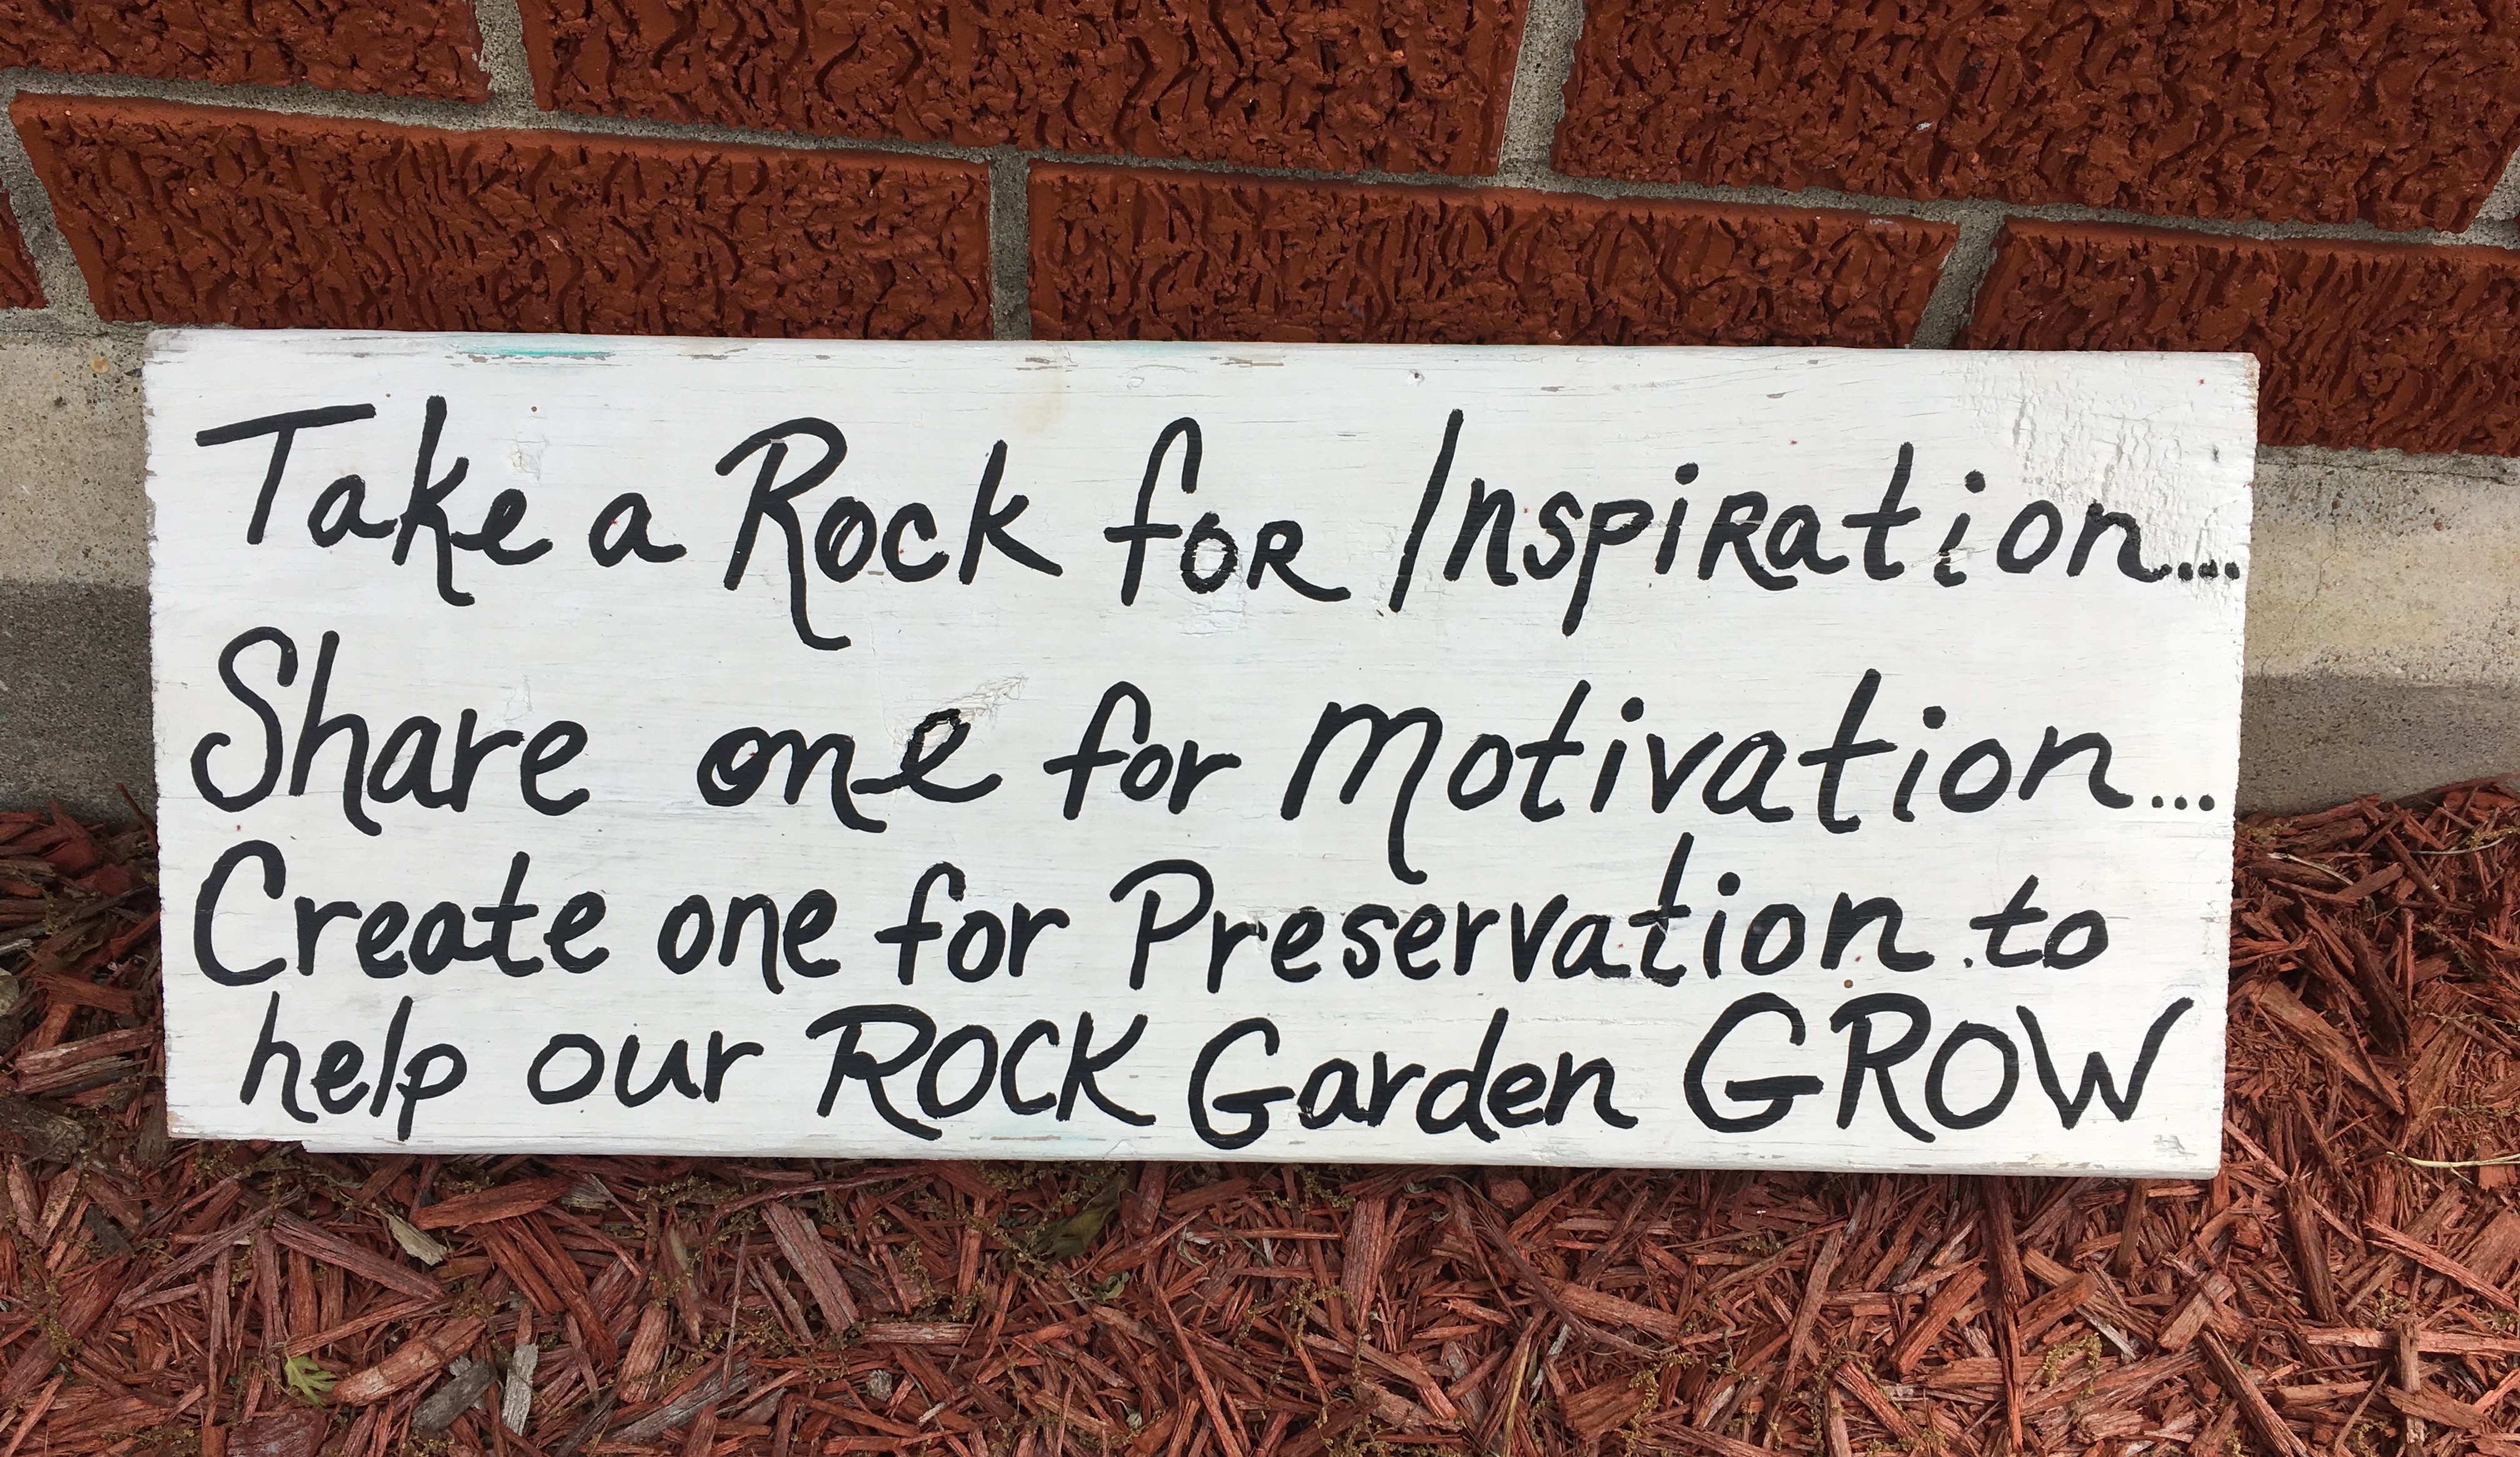 Take a Rock for Inspiration....
Share one for Motivation...
Create one for Preservation to
help our ROCK Garden GROW